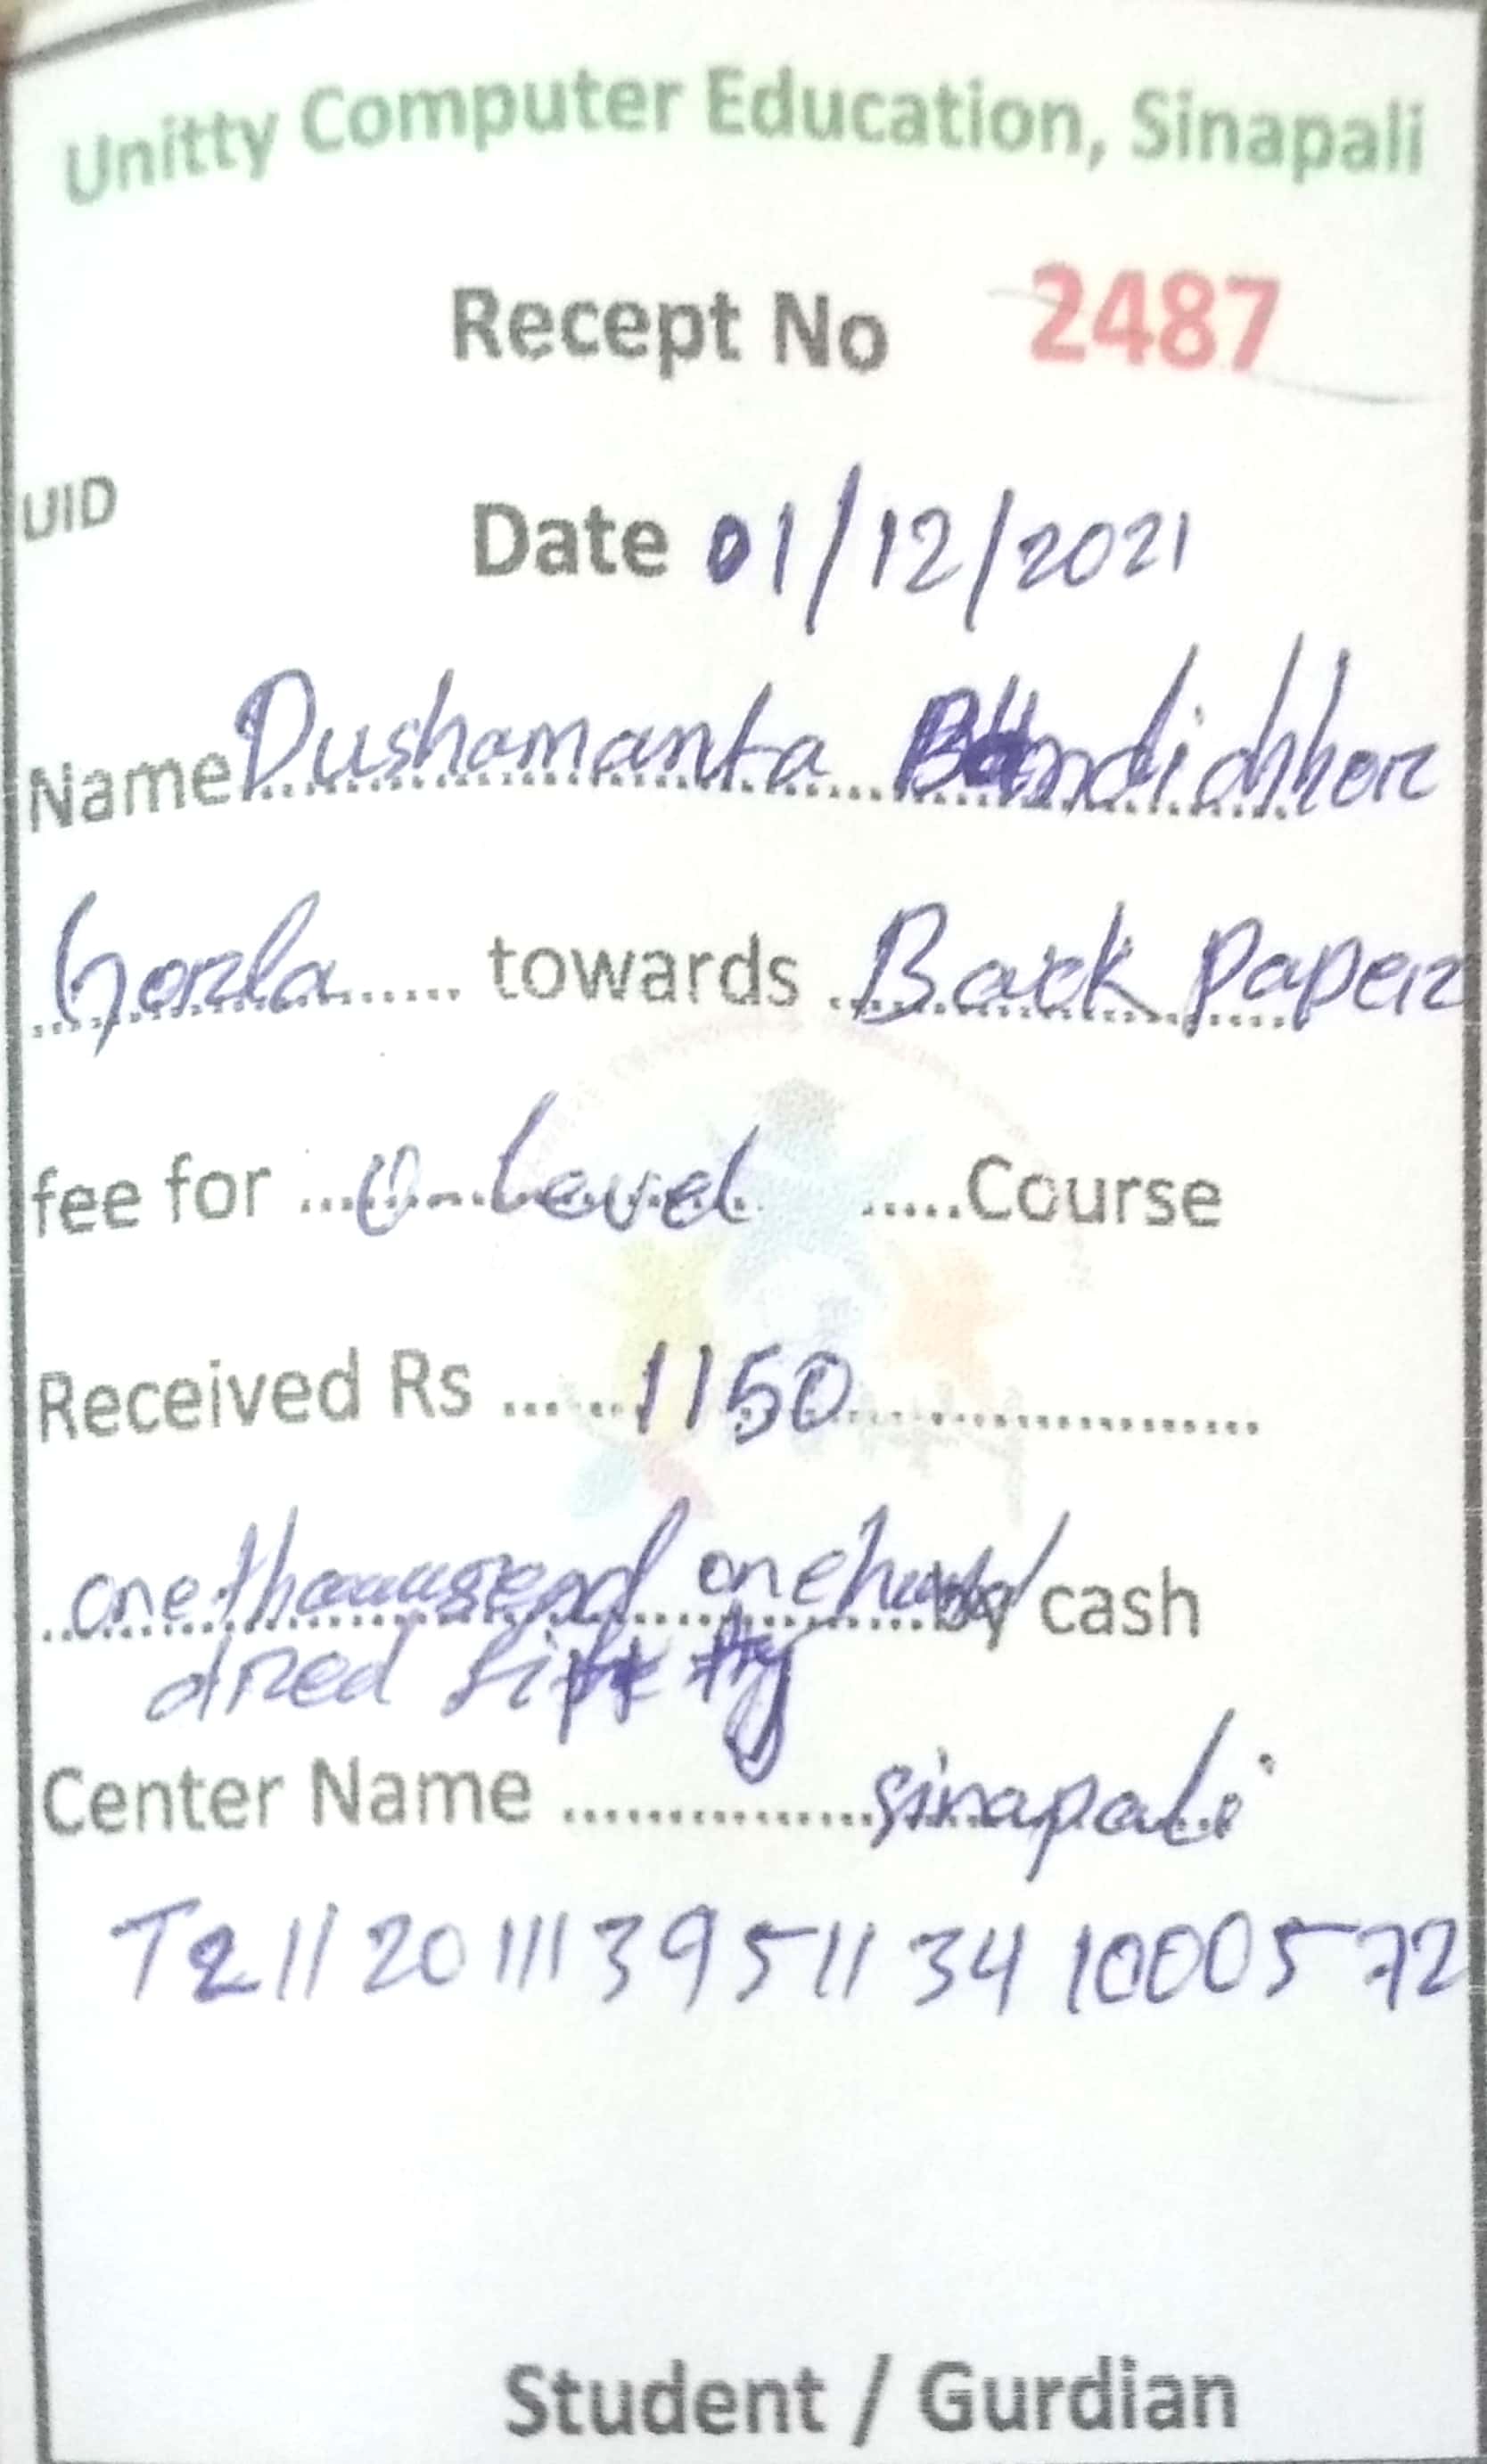 Unitty Computer Education, Sinapali
Recept No 2487
UID
Date 01/12/2021
Name Dushamanta
towards Back Paper
fee for O Level Course
Received Rs 1150
one thousend one hun by cash
dred fifty
Center Name Sinapali
T2112011139511341000572
Student / Gurdian